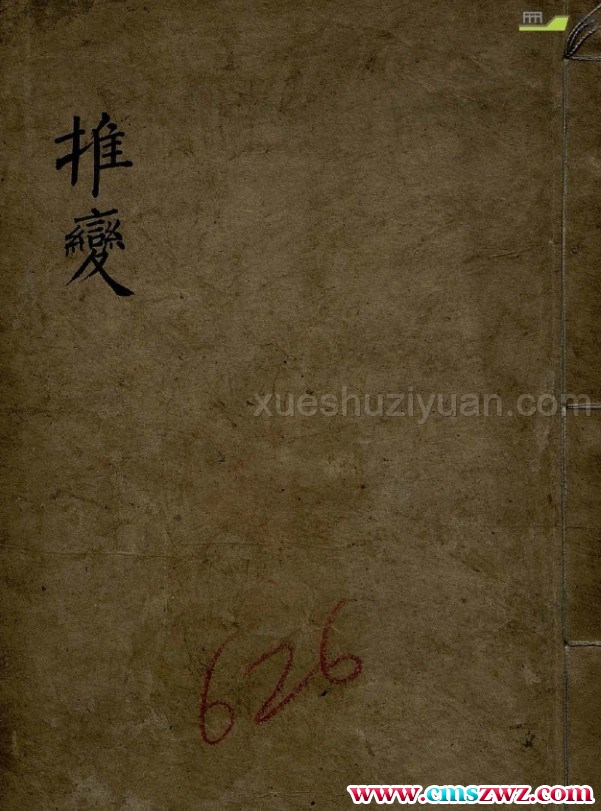 推變
xueshuziyuan.com
626
www.cmszwz.com